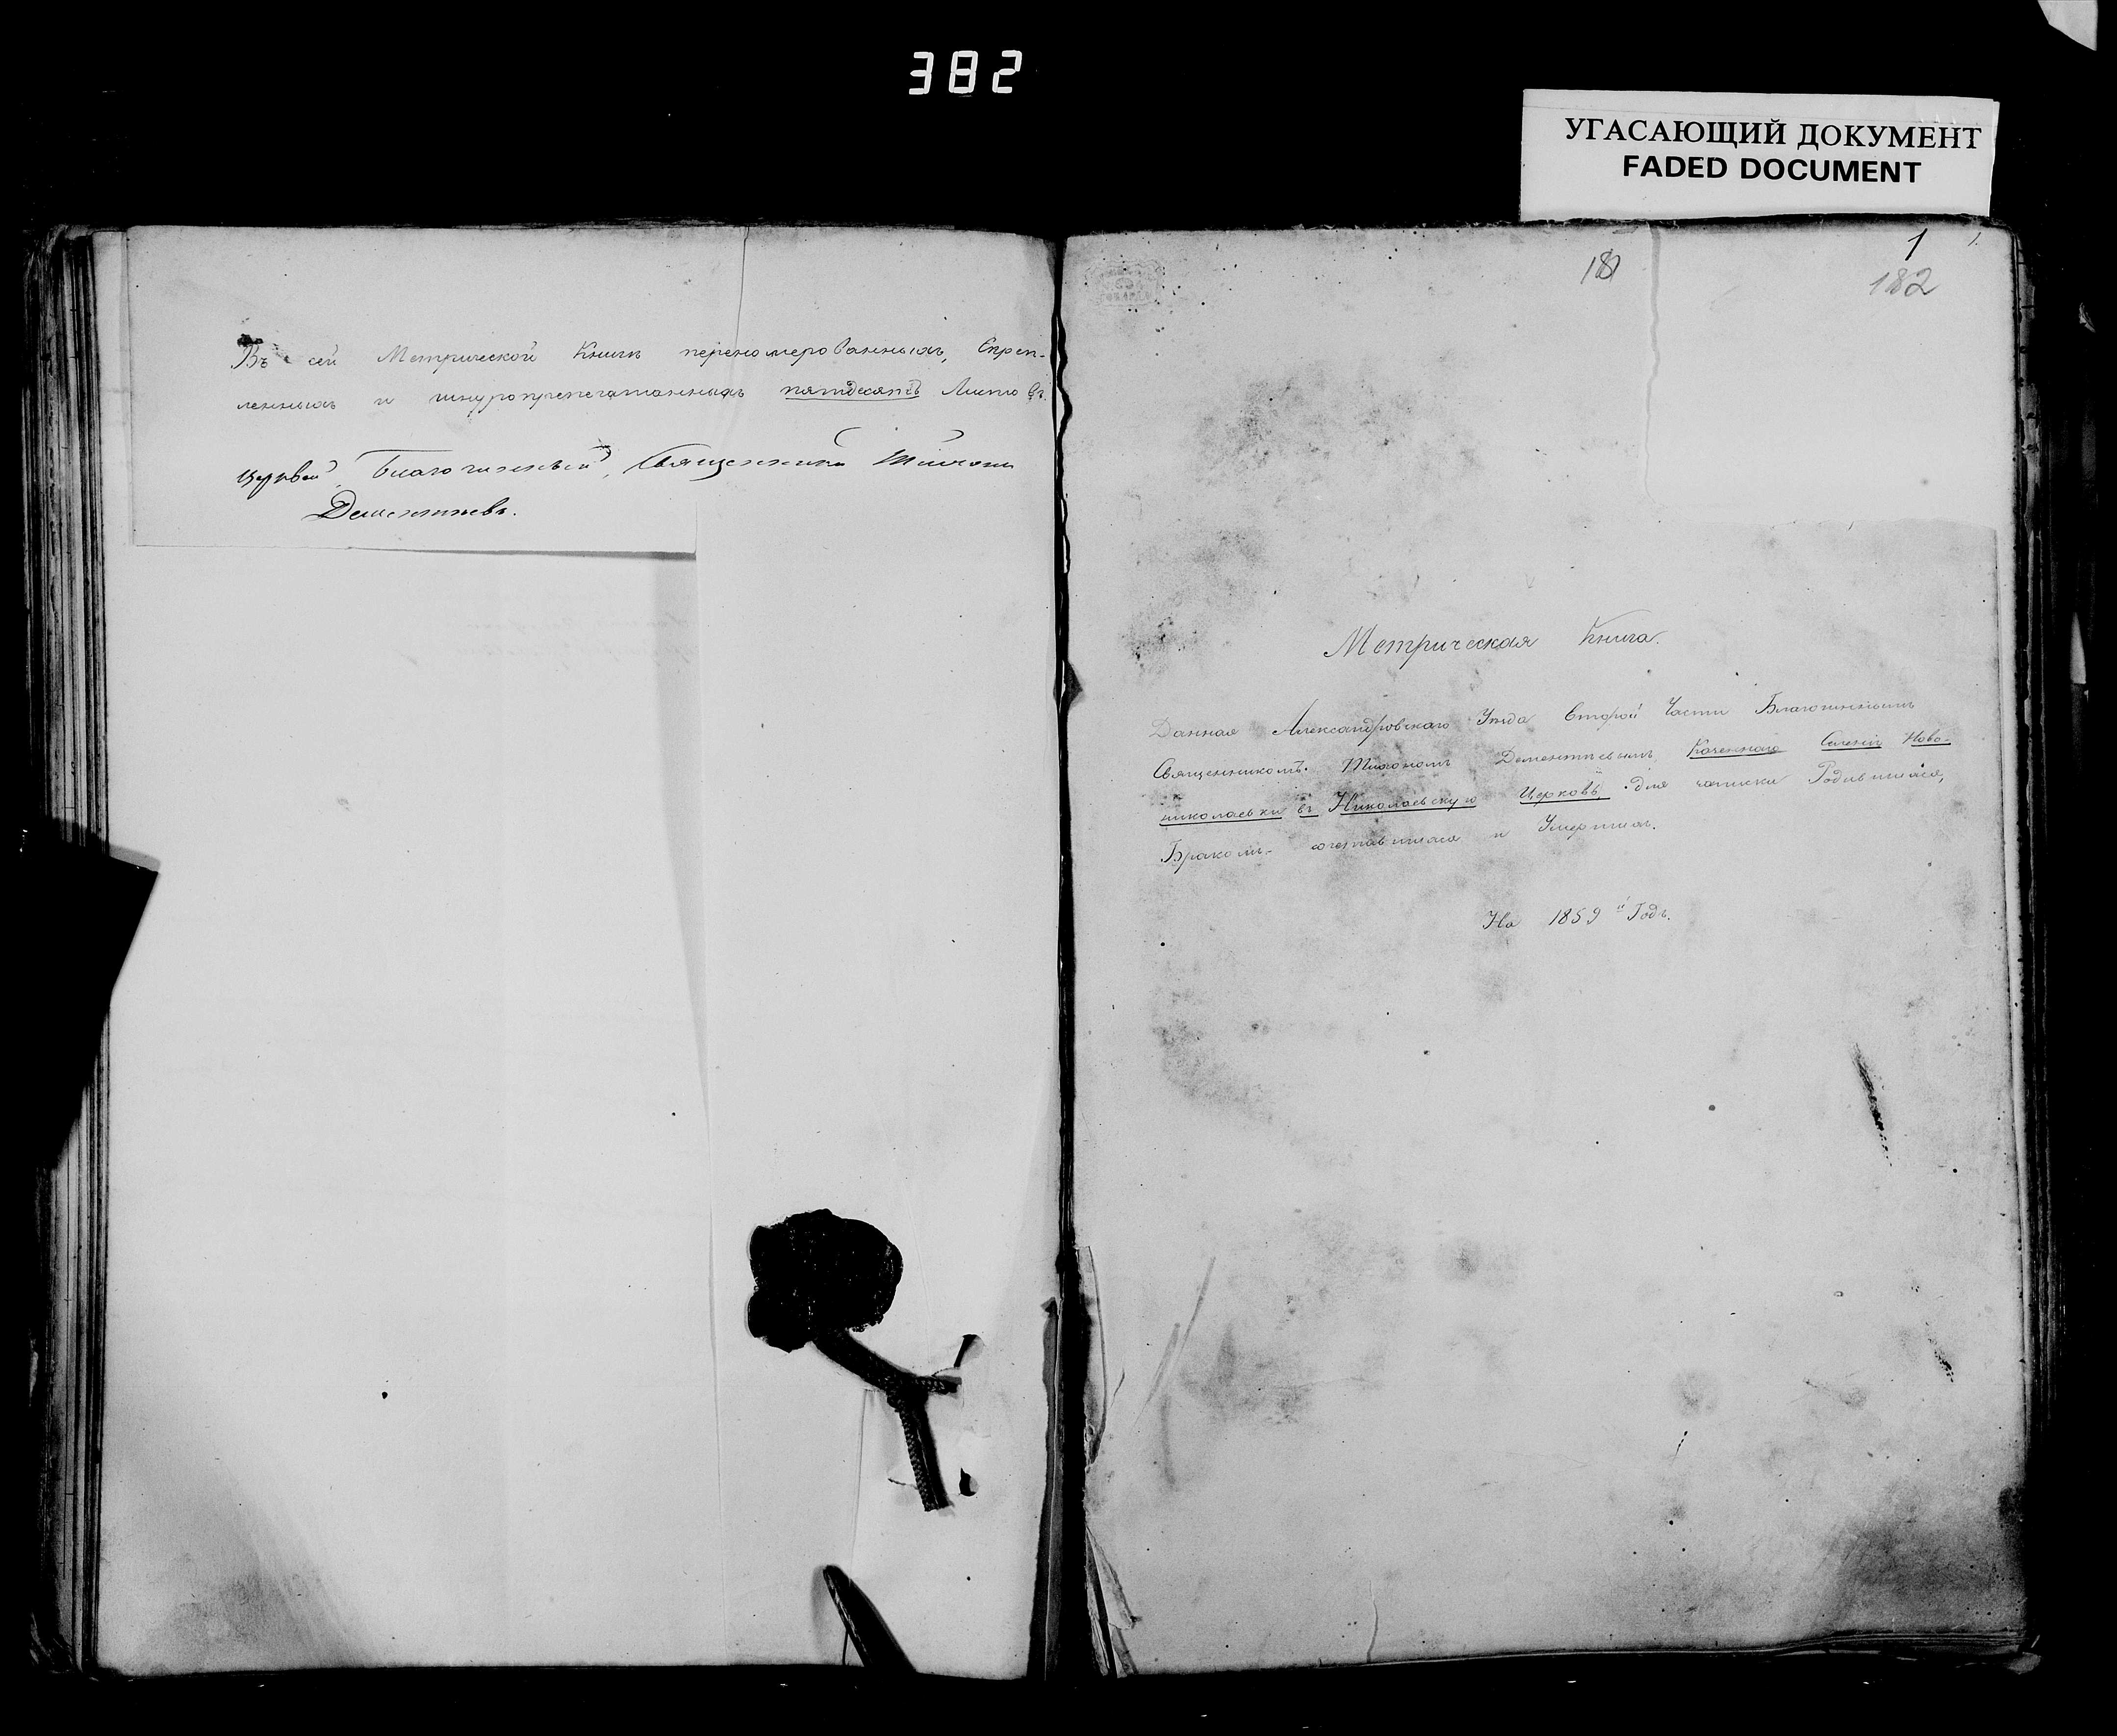 382
УГАСАЮЩИЙ ДОКУМЕНТ
FADED DOCUMENT
Въ сей Метрической Книги переномерованныхъ, Скреп-
ленныхъ и шнуропрепечатанныхъ пятдесятъ Листовъ.
Церквей Благочинный, Священникъ Тихонъ
Дементьевъ.
1
182
Метрическая Книга.
Данная Александровскаго Уезда Второй Части Благочиннымъ
Священникомъ Тихономъ Дементьевымъ, Казеннаго Селенія Ново-
николаевки въ Николаевскую Церковь, для записки Родившихся,
Бракомъ- сочетавшихся и Умершихъ.
На 1859й Годъ.